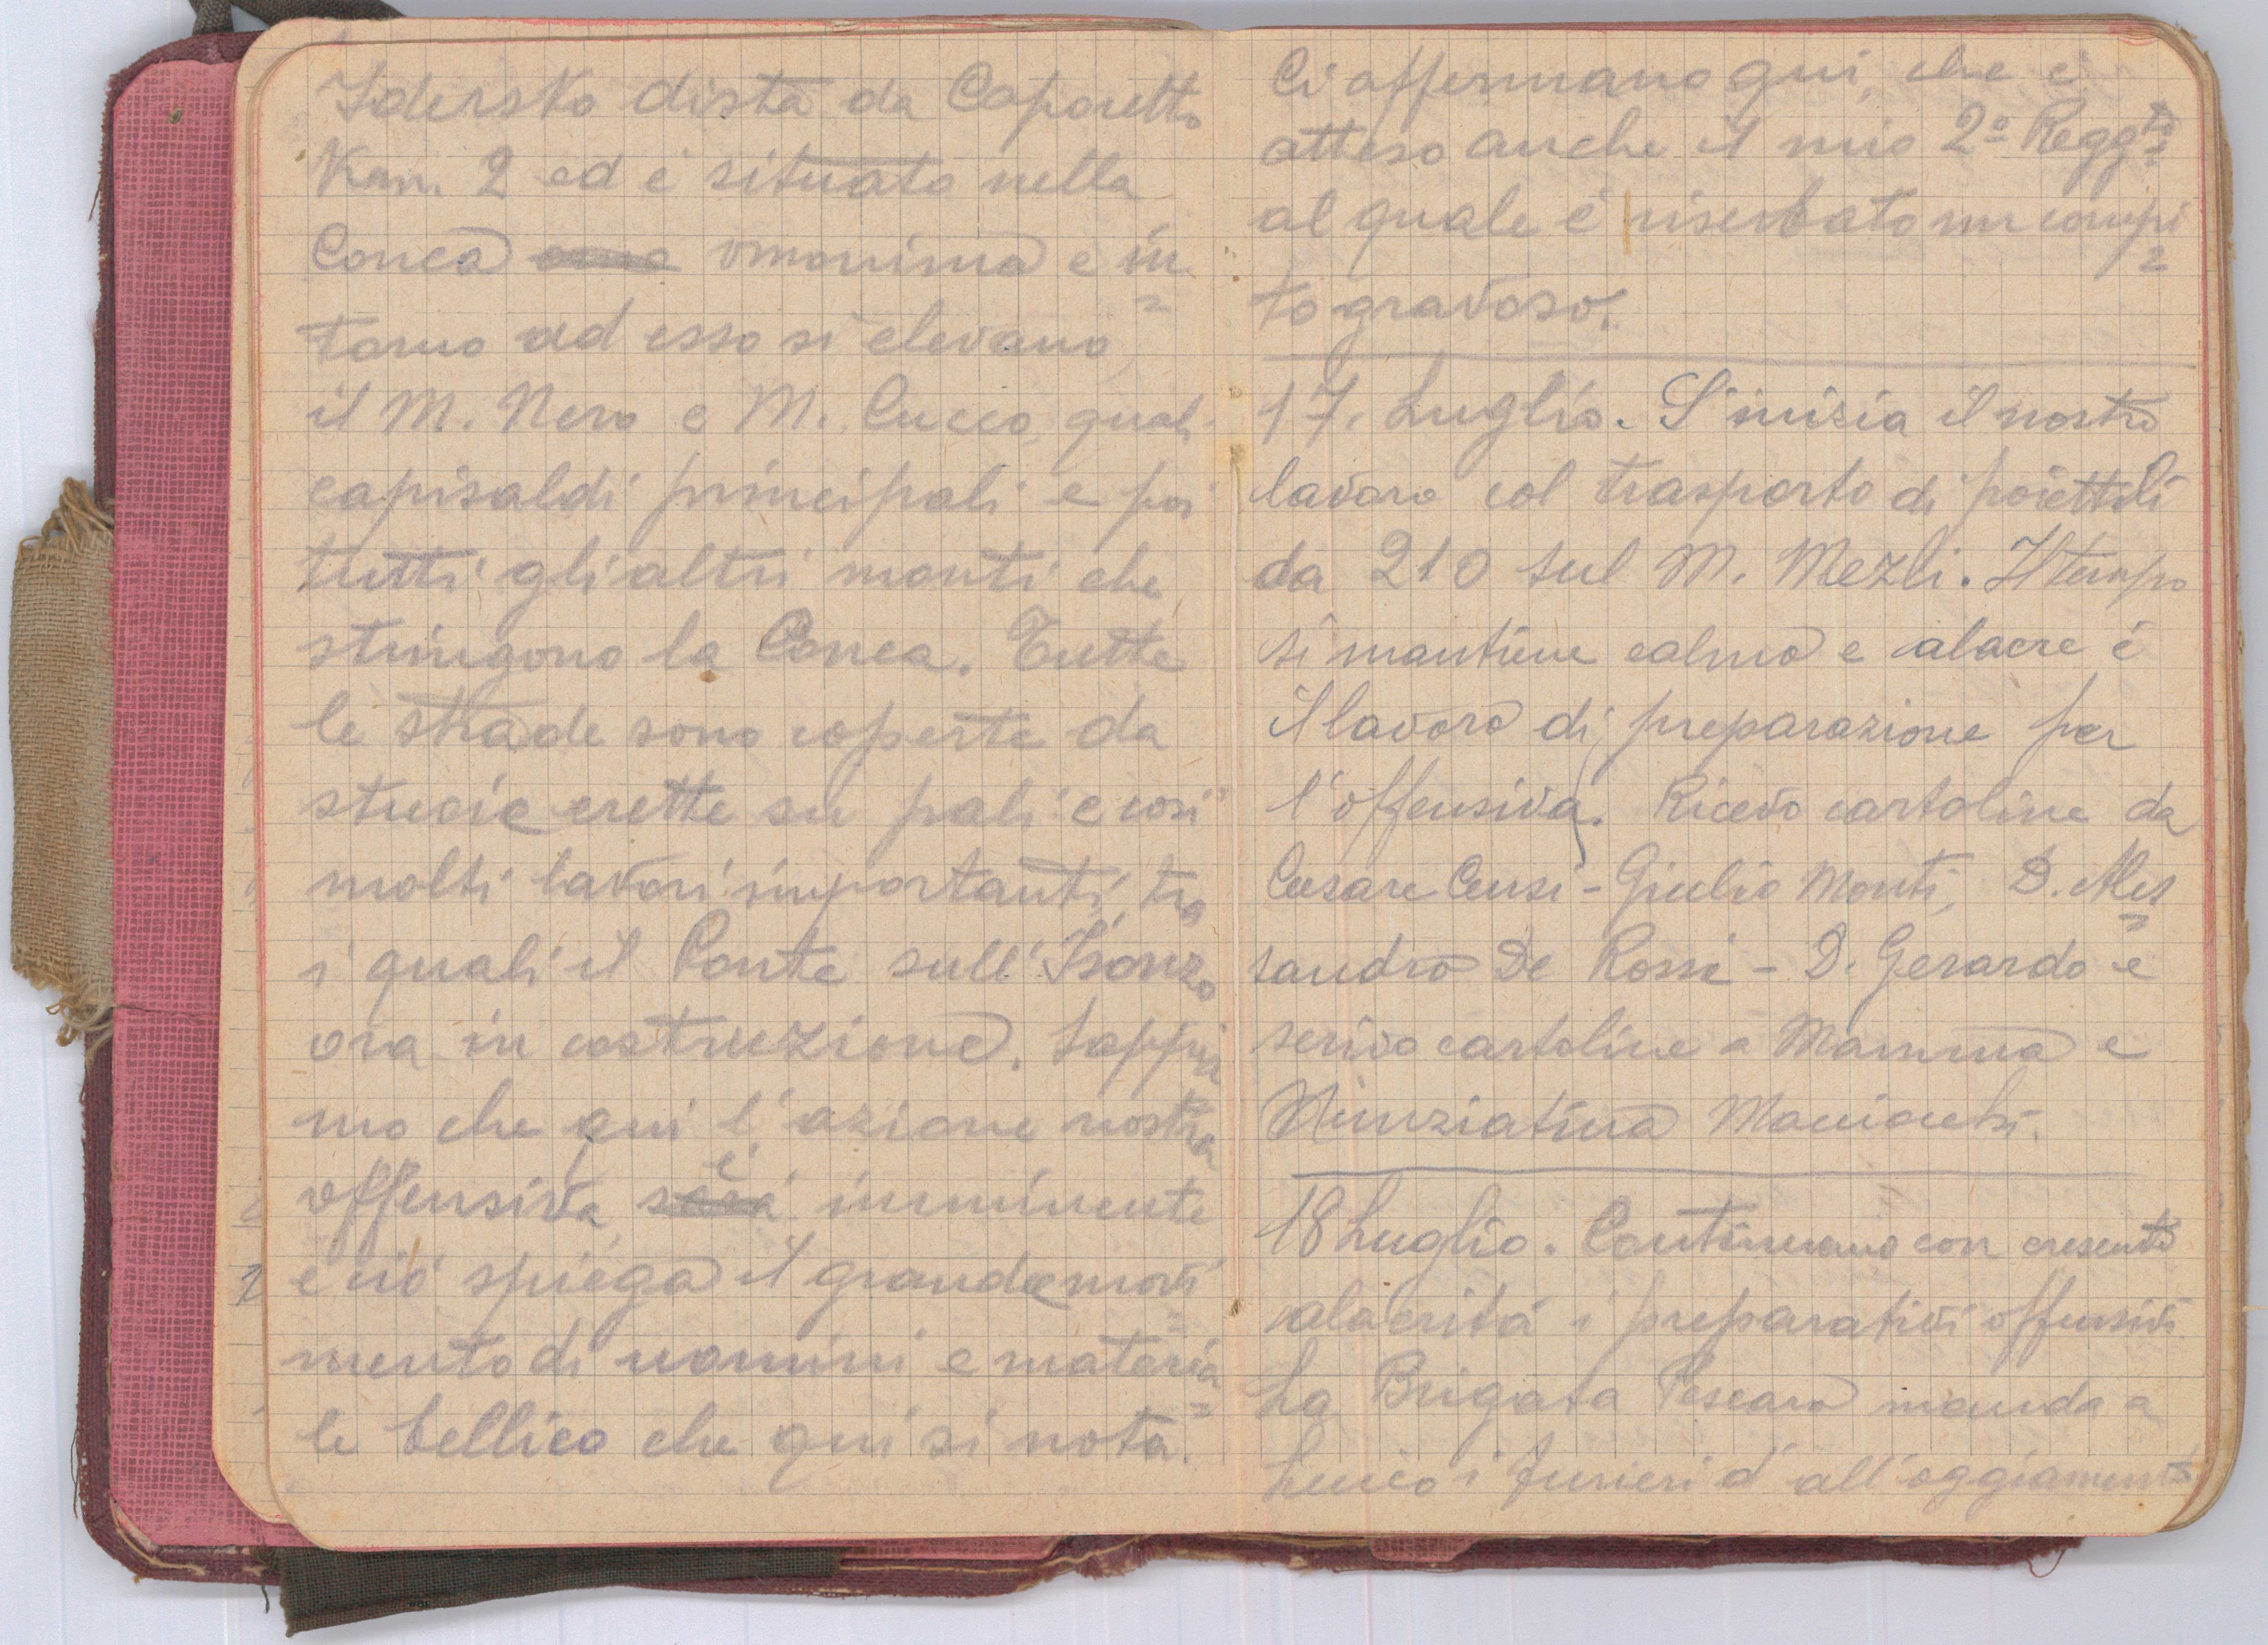 Idersko dista da Caporetto
Km. 2 ed é situato nella
Conca omonima e in=
torno ad esso si elevano,
il M. Nero e M. Cucco, quali
capisaldi principali e poi
tutti gli altri monti che
stringono la Conca. Tutte
le strade sono coperte da
stuoie erette su pali e così
molti lavori importanti, tra
i quali il Ponte sull'Isonzo
ora in costruzione. Sappia
mo che qui l'azione nostra
offensiva é imminente
e ció spiega il grande movi=
mento di uomini e materia=
le bellico che qui si nota.
Ci affermano qui, che é
atteso anche il mio 2º Reggto
al quale é riserbato un compi=
to gravoso.
17. Luglio. S'inizia il nostro
lavoro col trasporto di poiettili
da 210 sul M. Mezli. Il tempo
si mantiene calmo e alacre é
il lavoro di preparazione per
l'offensiva. Ricevo cartoline da
Cesare Censi - Giulio Monti, D. Ales=
sandro De Rossi - D. Gerardo e
scrivo cartoline a Mamma e
Nunziatina
18 Luglio. Continuano con crescente
alacritá i preparativi offensivi.
La Brigata Pescara manda a
i furieri d'all'oggiamento